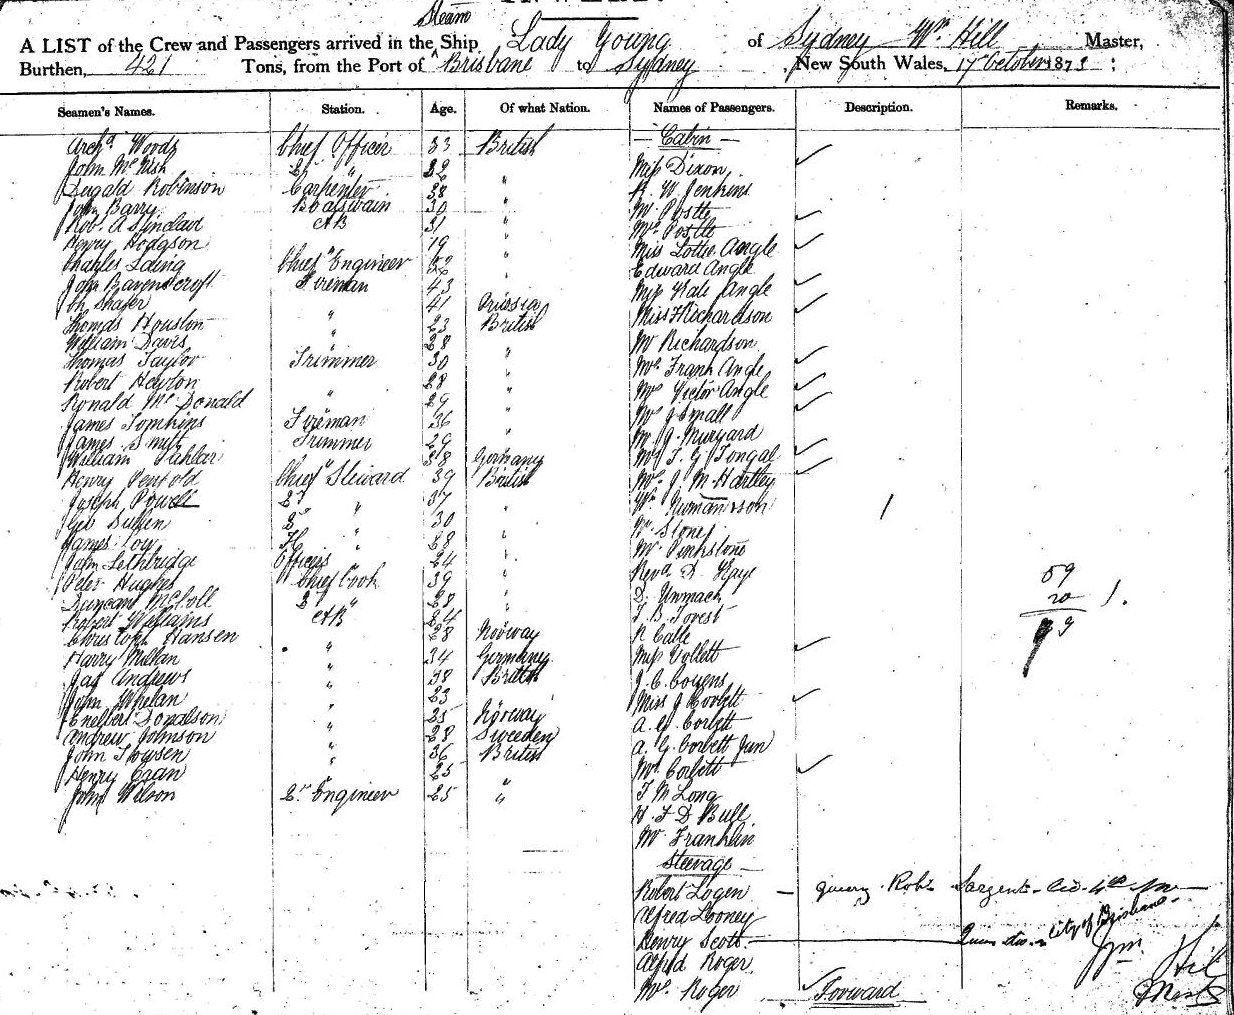 Steam
A LIST of the Crew and Passengers arrived in the Ship Lady Young of Sydney Wm Hill Master,
Burthen, 421 Tons, from the Port of Brisbane to Sydney, New South Wales, 17 October 1873
Seamen's Names. Station. Age. Of what Nation. Names of Passengers. Description. Remarks.
Archd Woods Chief Officer 33 British Cabin
John McNish 2r " 32 " Miss Dixon
Dugald Robinson Carpenter 38 " W Jenkins
John Barry Boatswain 30 " Mr Postle
Robt A Synclair AB 31 " Mrs Postle
Henry Hodgson " 19 " Miss Lottie Angle
Charles Laing Chief Engineer " Edward Angle
John Ravenscroft Fireman 43 " Miss Kate Angle
Shafer " 41 Prussia Miss Richardson
Thomas Houston " 23 British Mr Richardson
William Davis 28 " Mrs Frank Angle
Thomas Taylor Trimmer 30 " Mrs Victor Angle
Robert Hepton 28 " Mrs J Small
Ronald McDonald " 29 " Mr J Muryard
James Tomkins Fireman 36 " Mrs T G
James Smith Trimmer 29 " Mrs J M Hartley
William 38 Germany
Henry Penfold Chief Steward 39 British Stone
Joseph Powell 2r " 37 " Mr Penkstone
Geo Sullen " 30 Revd D Kaye
James " 28 " D. Unmack
John Lethbridge Officers 24 " T B Forest
Peter Hughes Chief Cook 39 " R Calle 59
Duncan McColl 2r " 28 " Miss Vollett 20
Robert Williams AB 24 " J. C. Couens 39
Christoph Hansen " 28 Norway Miss J Corbett
Harry Millan " 34 Germany A. G. Corbett
Jas Andrews " 38 British A. G. Corbett Jun
John Whelan " 23 Mrs Corbett
Engelbert Donalson " 25 Norway T M Long
Andrew Johnson " 28 Sweden H. F. D Bull
John Towsen " 36 British Mr Franklin
Henry Egan " 25 " Steerage
John Wilson 2r Engineer 25 "
Robert Logen — query Robt Sargent
Alfred Looney City of Brisbane
Henry Scott
Alfred Roger Wm Hill
Mrs Roger Forward Master